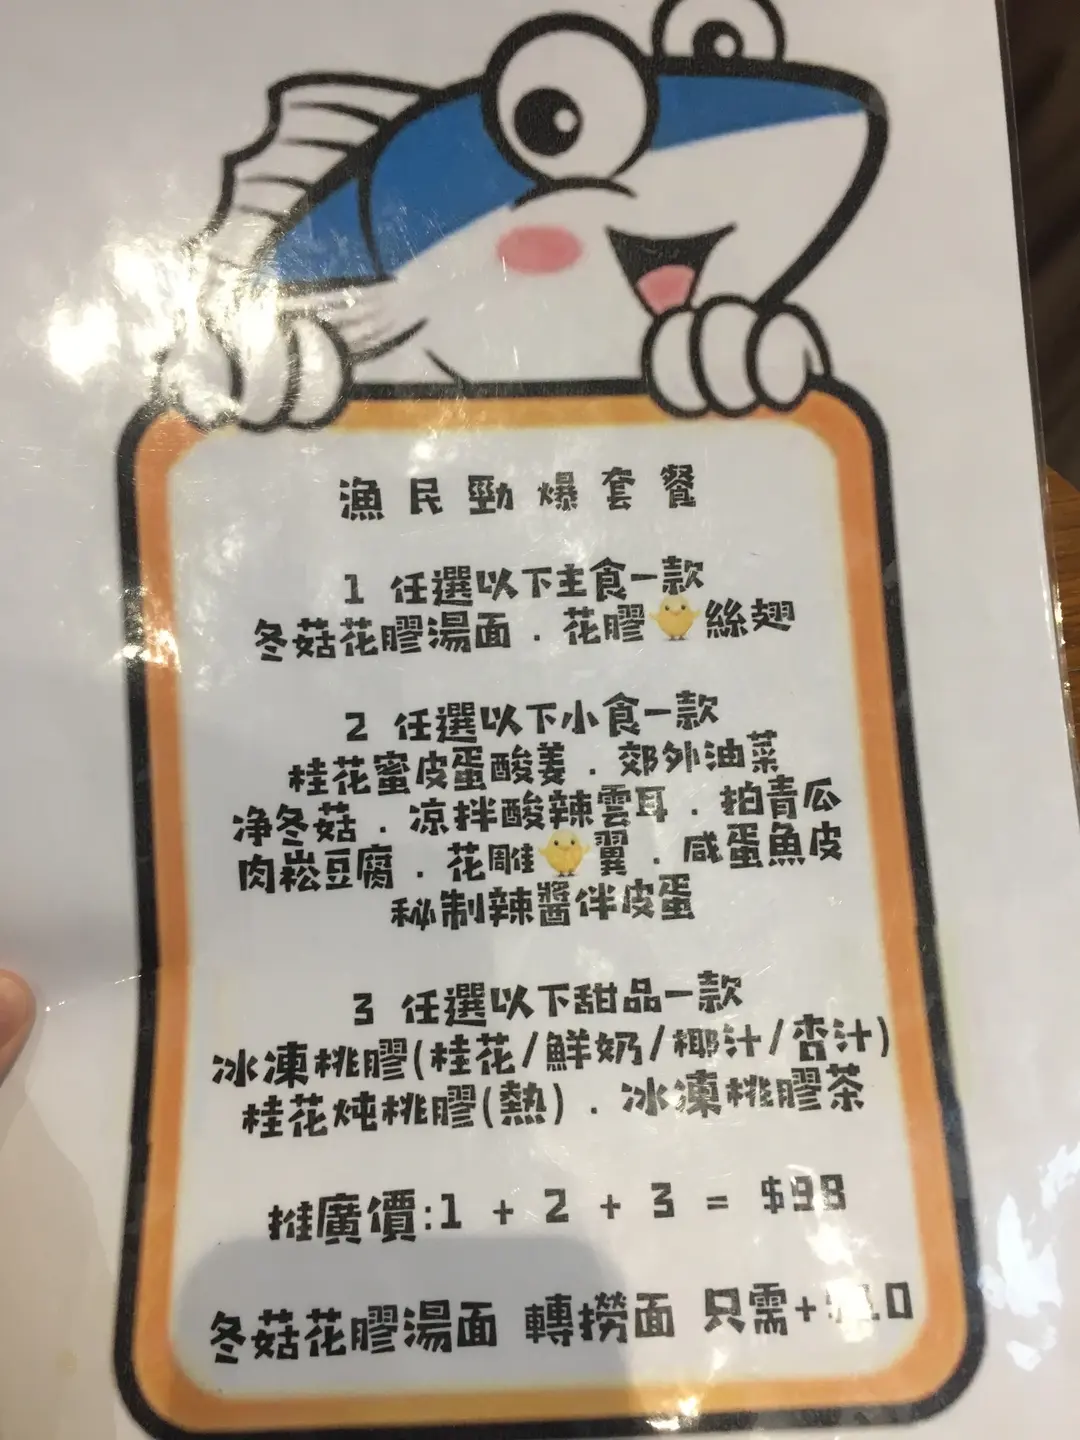 漁民勁爆套餐
1 任選以下主食一款
冬菇花膠湯面 . 花膠🐥絲翅
2 任選以下小食一款
桂花蜜皮蛋酸姜 . 郊外油菜
净冬菇 . 凉拌酸辣雲耳 . 拍青瓜
肉崧豆腐 . 花雕🐥翼 . 咸蛋魚皮
秘制辣醬伴皮蛋
3 任選以下甜品一款
冰凍桃膠(桂花/鮮奶/椰汁/杏汁)
桂花炖桃膠(熱) . 冰凍桃膠茶
推廣價:1 + 2 + 3 = $98
冬菇花膠湯面 轉撈面 只需+$10